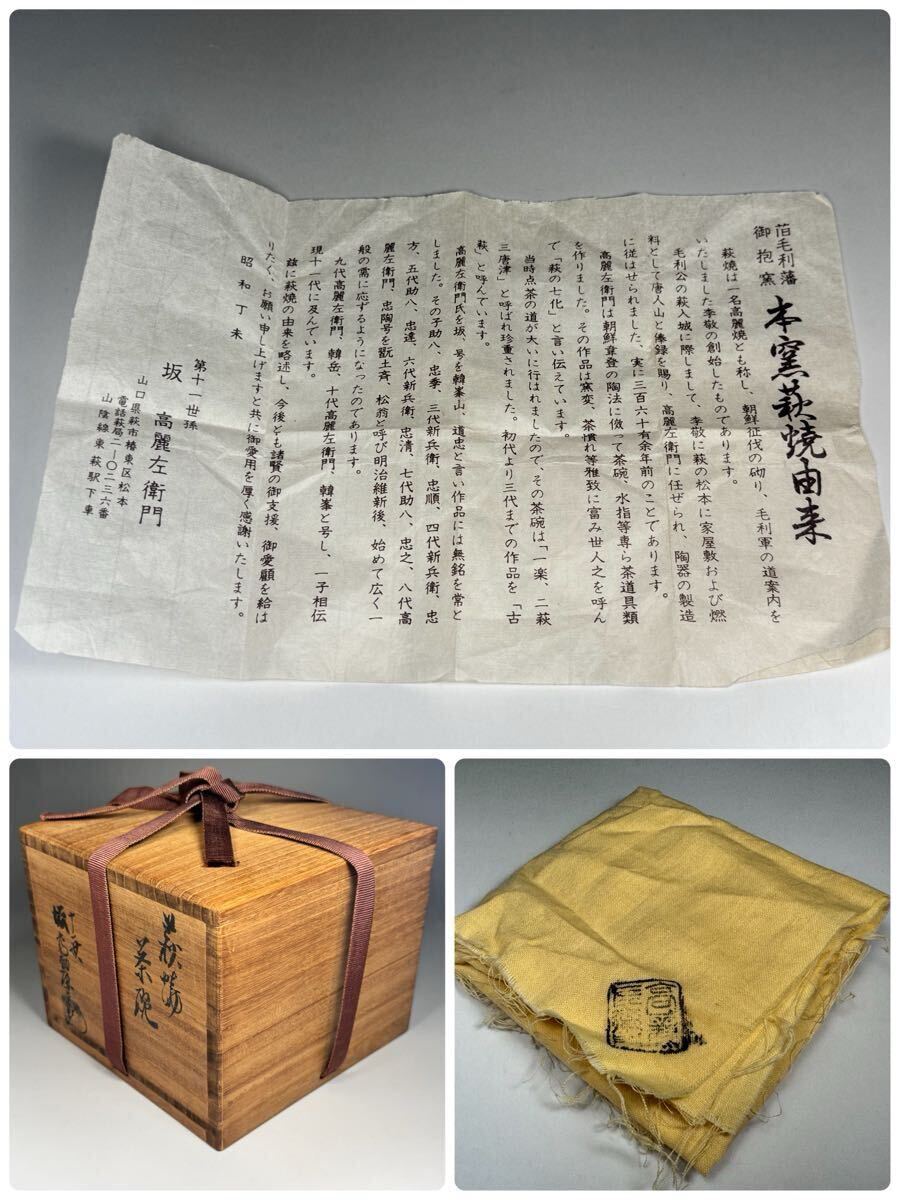 旧毛利藩
御抱窯
本窯萩焼由来
萩焼は一名高麗焼とも称し、朝鮮征伐の砌り、毛利軍の道案内を
いたしました李敬の創始したものであります。
毛利公の萩入城に際しまして、李敬に萩の松本に家屋敷および燃
料として唐人山と俸録を賜り、高麗左衛門に任ぜられ、陶器の製造
に従はせられました、実に三百六十有余年前のことであります。
高麗左衛門は朝鮮韋登の陶法に倣って茶碗、水指等専ら茶道具類
を作りました。その作品は窯変、茶慣れ等雅致に富み世人之を呼ん
で「萩の七化」と言い伝えています。
当時点茶の道が大いに行はれましたので、その茶碗は「一楽、二萩
三唐津」と呼ばれ珍重されました。初代より三代までの作品を「古
萩」と呼んでいます。
高麗左衛門氏を坂、号を韓峯山、道忠と言い作品には無銘を常と
しました。その子助八、忠季、三代新兵衛、忠順、四代新兵衛、忠
方、五代助八、忠達、六代新兵衛、忠清、七代助八、忠之、八代高
麗左衛門、忠陶号を翫土斉、松翁と呼び明治維新後、始めて広く一
般の需に応ずるようになったのであります。
九代高麗左衛門、韓岳、十代高麗左衛門、韓峯と号し、一子相伝
現十一代に及んでいます。
茲に萩焼の由来を略述し、今後とも諸賢の御支援、御愛顧を給は
りたく、お願い申し上げますと共に御愛用を厚く感謝いたします。
昭和丁未
第十一世孫
坂高麗左衛門
山口県萩市椿東区松本
電話萩局二―〇二三六番
山陰線東萩駅下車
萩焼
茶碗
十一世
坂高麗左衛門